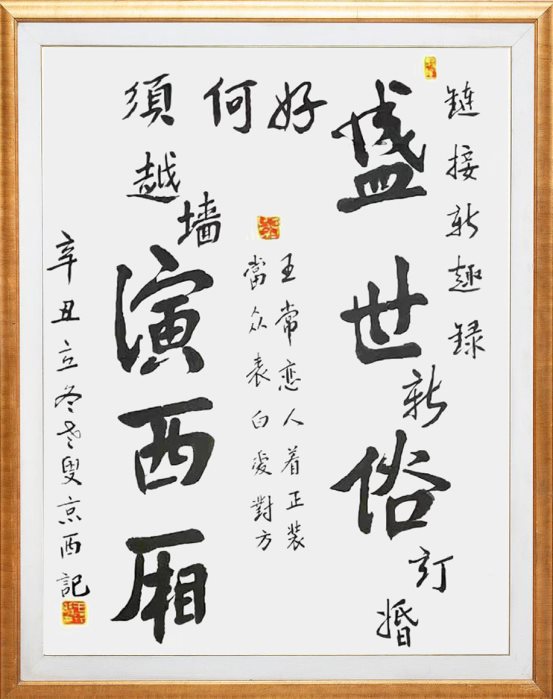 鏈接新趣録
盛世新俗訂婚
好何須
越墻演西厢
王常恋人着正装
當众表白爱對方
辛丑立冬老叟京西記